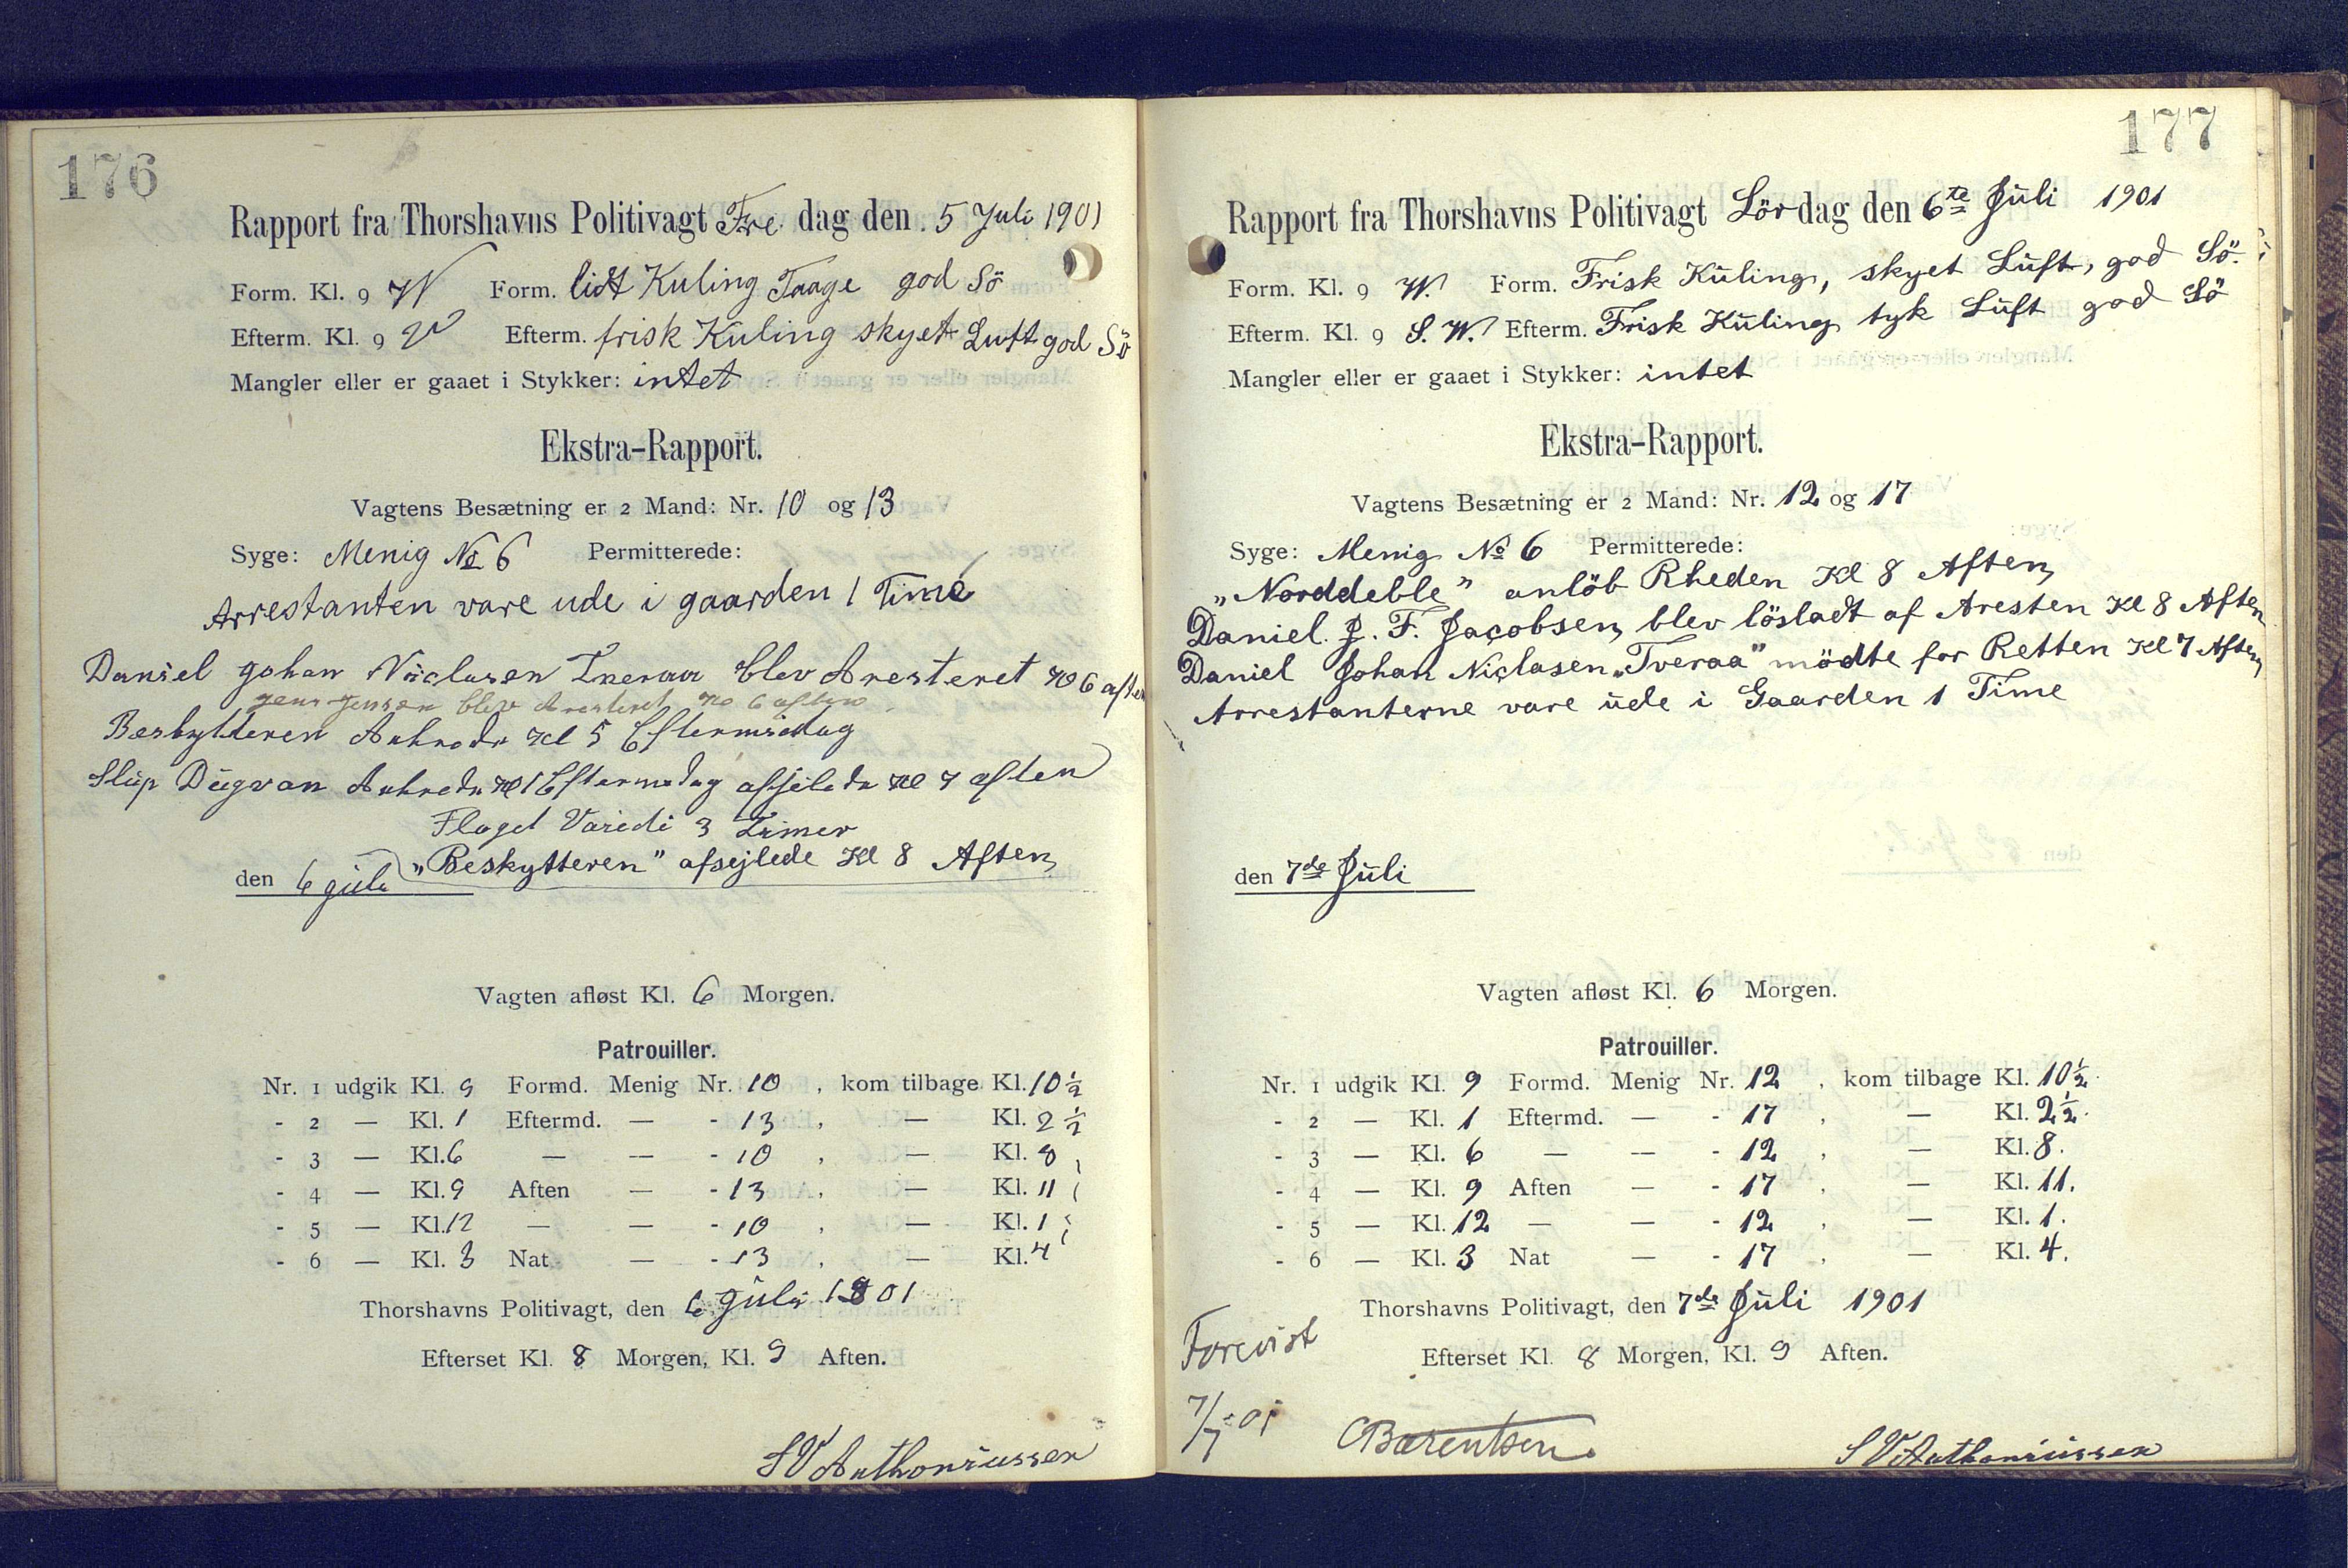 176
Rapport fra Thorshavns Politivagt Fre dag den 5 Juli 1901
Form. Kl. 9 W Form. lidt Kuling Taage god Sö
Efterm. Kl. 9 W Efterm. frisk Kuling skyet Luft god Sö
Mangler eller er gaaet i Stykker: intet
Ekstra-Rapport.
Vagtens Besætning er 2 Mand: Nr. 10 og 13
Syge: Menig № 6 Permitterede:
Arrestanten vare ude i gaarden 1 Time
Daniel Johan Niclasen Tveraa blev Aresteret Kl 6 aften
Jens Jensen blev Aresteret Kl 6 aften
Beskytteren Ankrede Kl 5 Eftermidag
Slup Dugvan Ankrede Kl 1 Eftermedag afsjlede Kl 7 aften
Flaget Varede 3 Timer
"Beskytteren" afsejlede Kl 8 Aften
den 6 Juli
Vagten afløst Kl. 6 Morgen.
Patrouiller.
Nr. 1 udgik Kl. 9 Formd. Menig Nr. 10 , kom tilbage Kl. 10 ½
- 2 — Kl. 1 Eftermd. — - 13 , — Kl. 2 ½
- 3 — Kl. 6 — — - 10 , — Kl. 8
- 4 — Kl. 9 Aften — - 13 , — Kl. 11
- 5 — Kl. 12 — — - 10 , — Kl. 1
- 6 — Kl. 3 Nat — - 13 , — Kl. 4
Thorshavns Politivagt, den 6 Juli 1901
Efterset Kl. 8 Morgen, Kl. 9 Aften.
S V Anthoniussen
177
Rapport fra Thorshavns Politivagt Lör dag den 6te Juli 1901
Form. Kl. 9 W. Form. Frisk Kuling, skyet Luft, god Sö.
Efterm. Kl. 9 S. W. Efterm. Frisk Kuling tyk Luft god Sö
Mangler eller er gaaet i Stykker: intet
Ekstra-Rapport.
Vagtens Besætning er 2 Mand: Nr. 12 og 17
Syge: Menig № 6 Permitterede:
"Norddeble" anlöb Rheden Kl 8 Aften
Daniel J. F. Jacobsen blev lösladt af Aresten Kl 8 Aften
Daniel Johan Niclasen "Tveraa" mödte for Retten Kl 7 Aften
Arrestanterne vare ude i Gaarden 1 Time
den 7de Juli
Vagten afløst Kl. 6 Morgen.
Patrouiller.
Nr. 1 udgik Kl. 9 Formd. Menig Nr. 12 , kom tilbage Kl. 10 ½.
- 2 — Kl. 1 Eftermd. — - 17 , — Kl. 2 ½.
- 3 — Kl. 6 — — - 12 , — Kl. 8.
- 4 — Kl. 9 Aften — - 17 , — Kl. 11.
- 5 — Kl. 12 — — - 12 , — Kl. 1.
- 6 — Kl. 3 Nat — - 17 , — Kl. 4.
Thorshavns Politivagt, den 7de Juli 1901
Efterset Kl. 8 Morgen, Kl. 9 Aften.
Forevist
7/7 01
CBærentsen.
S V Anthoniussen